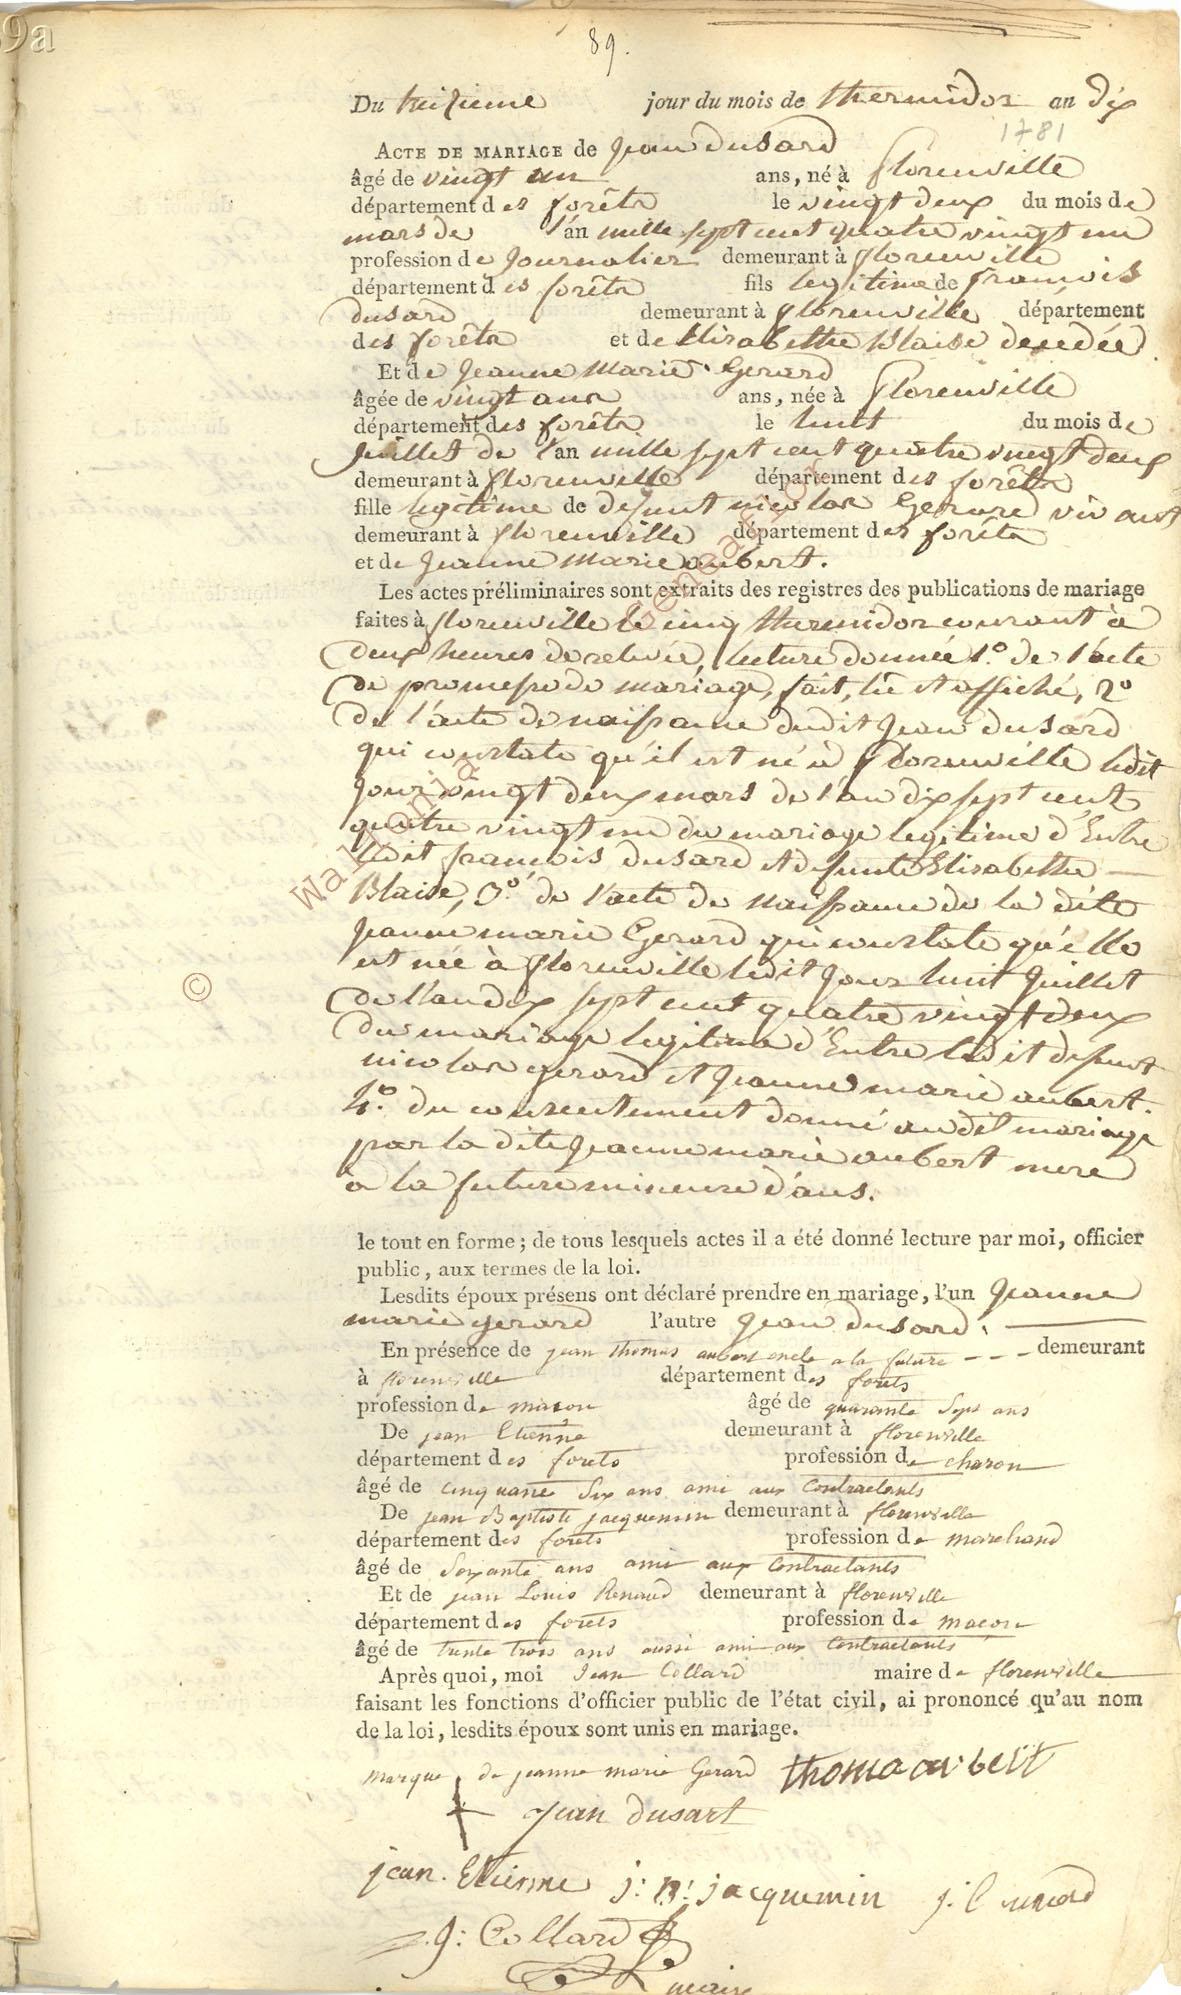 9a
89.
Du treizieme jour du mois de thermidor an dix
1781
ACTE DE MARIAGE de Jean dusard
âgé de vingt un ans, né à florenville
département des forêts le vingt deux du mois de
mars de l'an mille sept cent quatre vingt un
profession de Journalier demeurant à florenville
département des forêts fils legitime de françois
dusard demeurant à florenville département
des forêts et de Elisabethe Blaise decedée
Et de Jeanne Marie Gerard
âgée de vingt ans ans, née à florenville
département des forêts le huit du mois de
Juillet de l'an mille sept cent quatre vingt deux
demeurant à florenville département des forêts
fille legitime de defunt nicolas Gerard vivant
demeurant à florenville département des forêts
et de Jeanne Marie aubert.
Les actes préliminaires sont extraits des registres des publications de mariage
faites à florenville le cinq thermidor courant à
deux heures de relevée, lecture donnée 1.o de l'acte
de promesse de mariage, fait, lu et affiché, 2o
de l'acte de naissance dudit Jean dusard
qui constate qu'il est né à florenville ledit
Jour vingt deux mars de l'an dix sept cent
quatre vingt un du mariage legitime d'Entre
ledit françois dusard et defunte Elisabethe
Blaise, 3.o de l'acte de naissance de la dite
Jeanne marie Gerard qui constate qu'elle
est née à florenville ledit Jour huit Juillet
de l'an dix sept cent quatre vingt deux
du mariage legitime d'Entre ledit defunt
nicolas gerard et Jeanne marie aubert.
4.o du consentement donné audit mariage
par la dite Jeanne marie aubert mere
a la future mineure d'ans.
le tout en forme ; de tous lesquels actes il a été donné lecture par moi, officier
public, aux termes de la loi.
Lesdits époux présens ont déclaré prendre en mariage, l'un Jeanne
marie gerard l'autre Jean dusard.
En présence de jean thomas aubert oncle a la future - - - demeurant
à florenville département des forets
profession de macon âgé de quarante sept ans
De jean Etienne demeurant à florenville
département des forets profession de charon
âgé de cinquante six ans ami aux contractants
De jean Baptiste jacquemin demeurant à florenville
département des forets profession de marchand
âgé de soixante ans ami aux contractants
Et de jean Louis Renaud demeurant à florenville
département des forets profession de macon
âgé de trente trois ans aussi ami aux contractants
Après quoi, moi Jean Collard maire de florenville
faisant les fonctions d'officier public de l'état civil, ai prononcé qu'au nom
de la loi, lesdits époux sont unis en mariage.
marque de jeanne marie Gerard thoma aubert
Jean dusart
jean. Etienne j: B: jacquemin j: l
J: Collard
maire
©